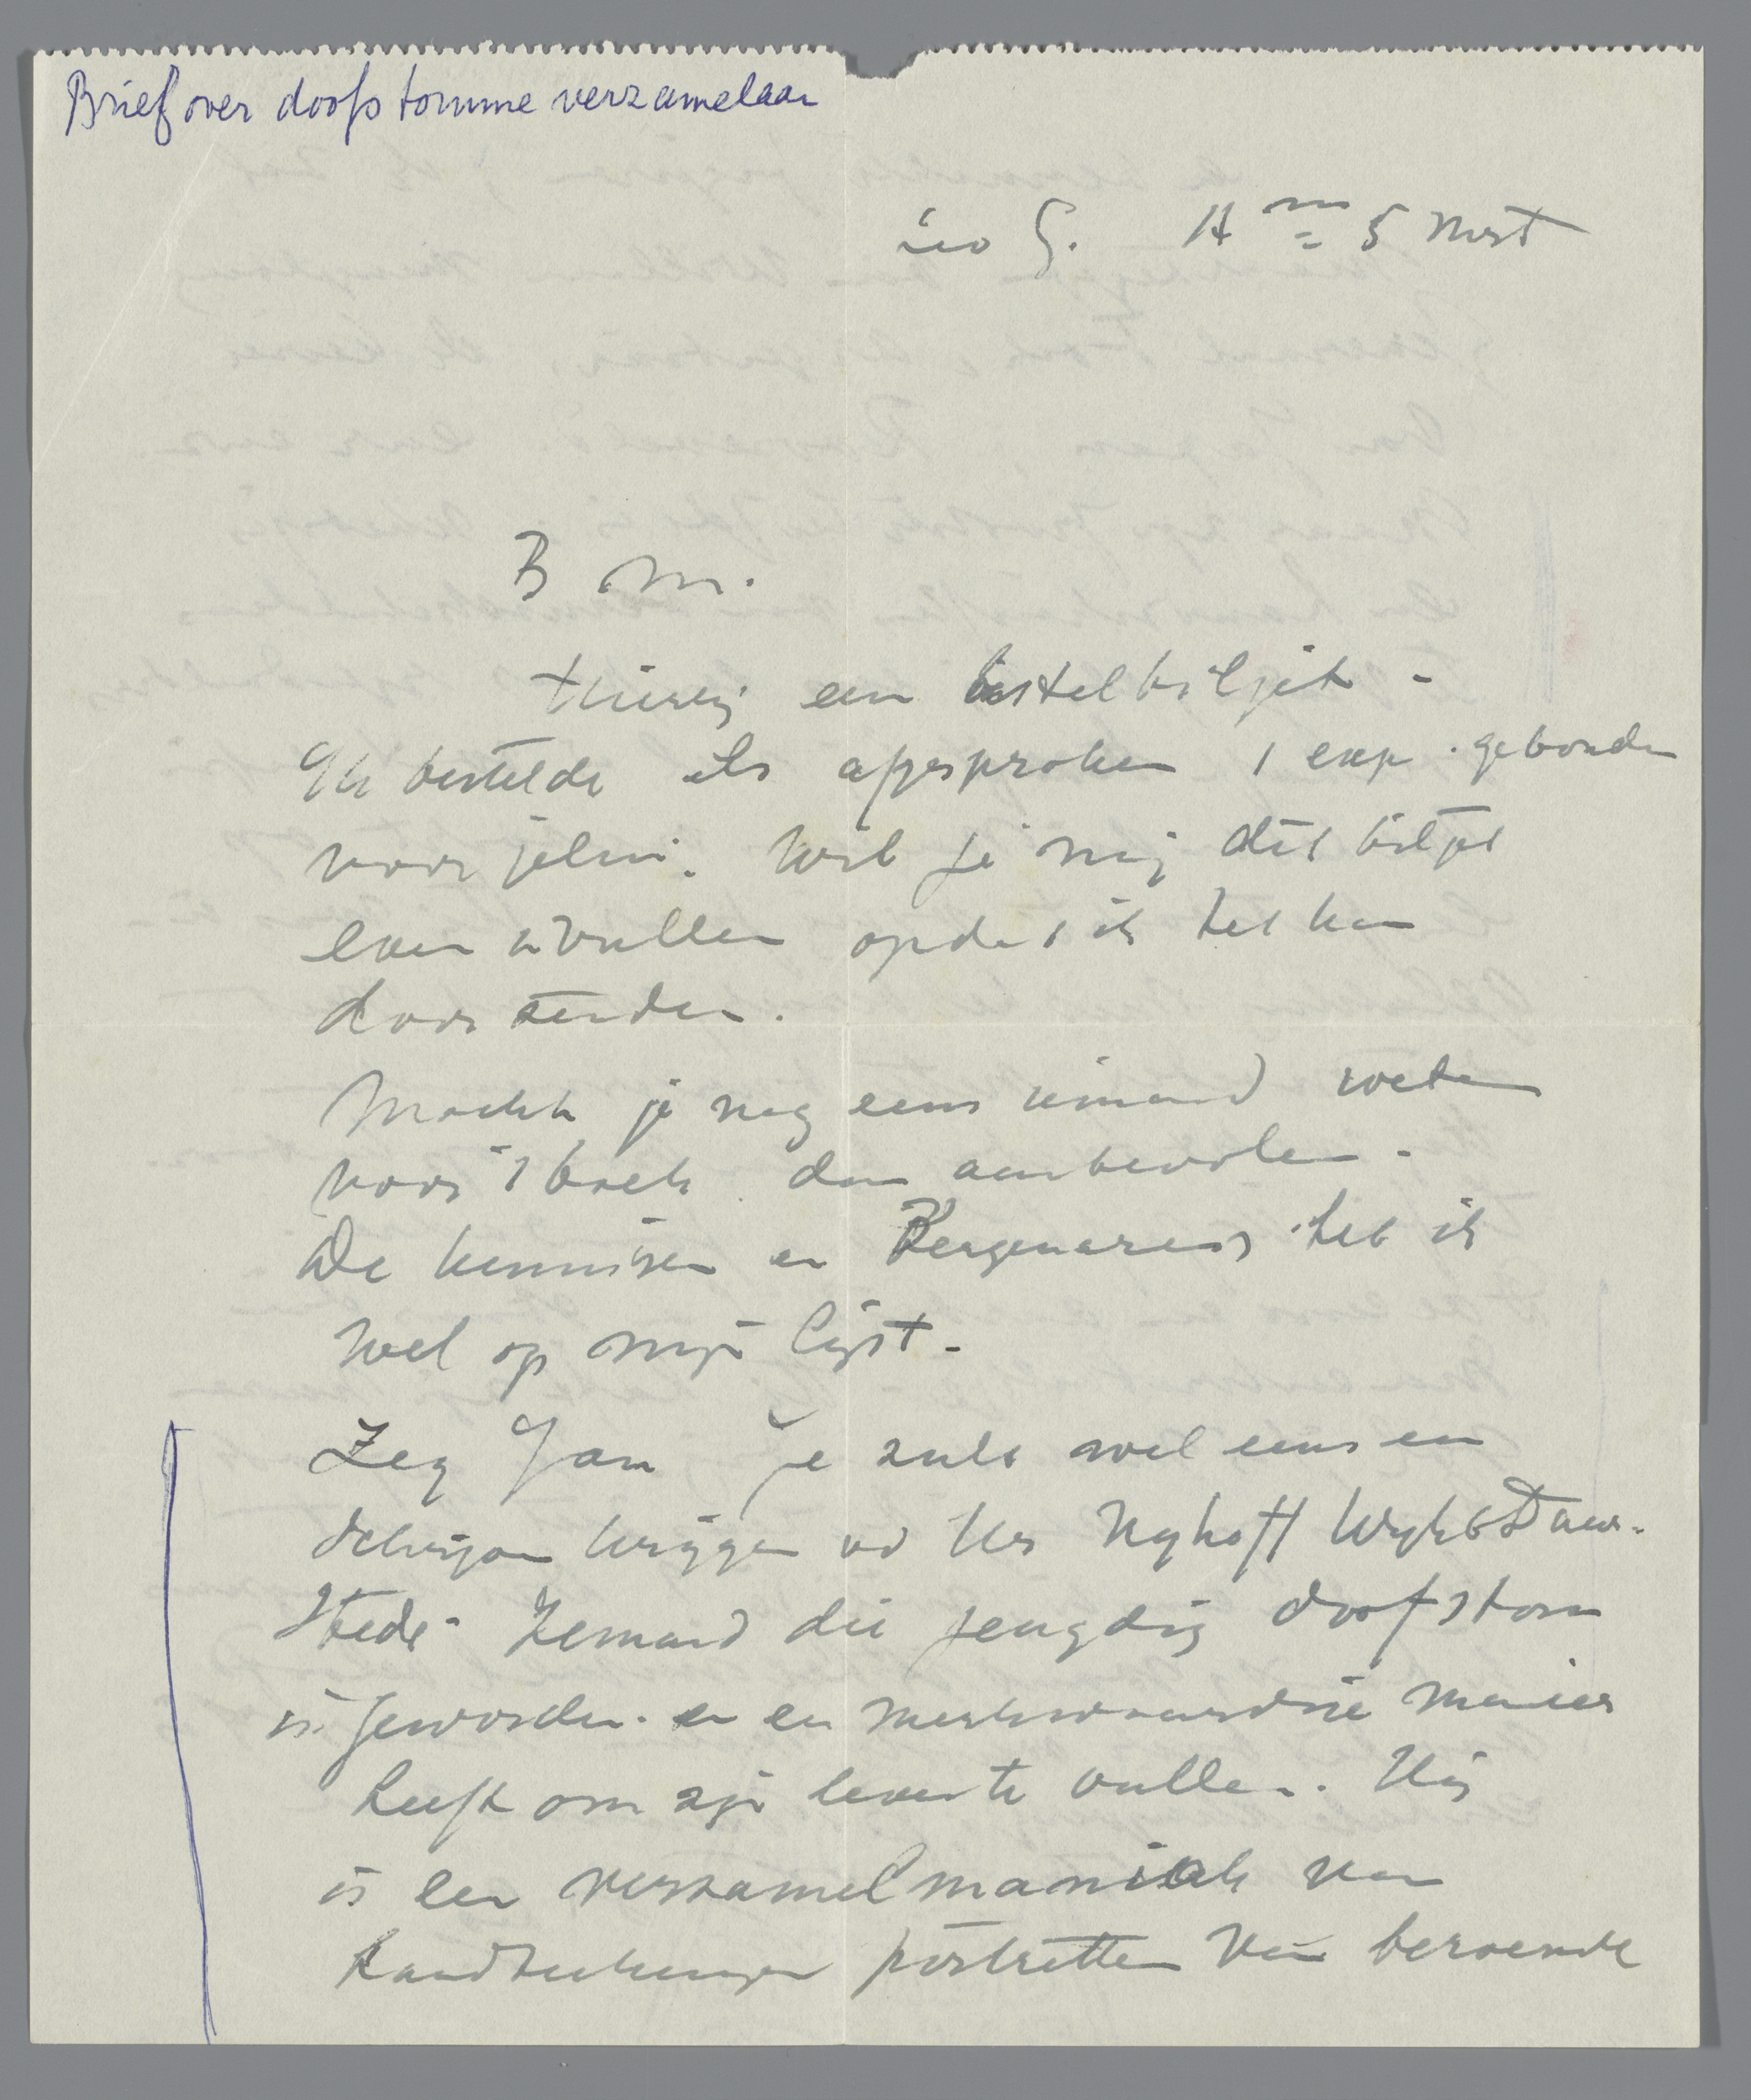 Brief over doofstomme verzamelaar
A 5 Mrt
B M.
Hierbij een bestelbiljet -
Ik bestelde als afgesproken 1 exp. gebonden
voor jelui. Wil je mij dit biljet
even invullen opdat ik het kan
doorzenden.
Mocht je nog eens iemand weten
voor 't boek dan aanbevolen -
De kennissen en Bergenaren heb ik
wel op mijn lijst -
Zeg Jan Je zult wel eens een
schrijven krijgen vd Hr Nyhoff Wyk b Duur-
stede - Iemand die jeugdig doofstom
is geworden - en een merkwaardige manier
heeft om zijn leven te vullen. Hij
is een verzamelmaniak van
handteekeningen portretten van beroemde